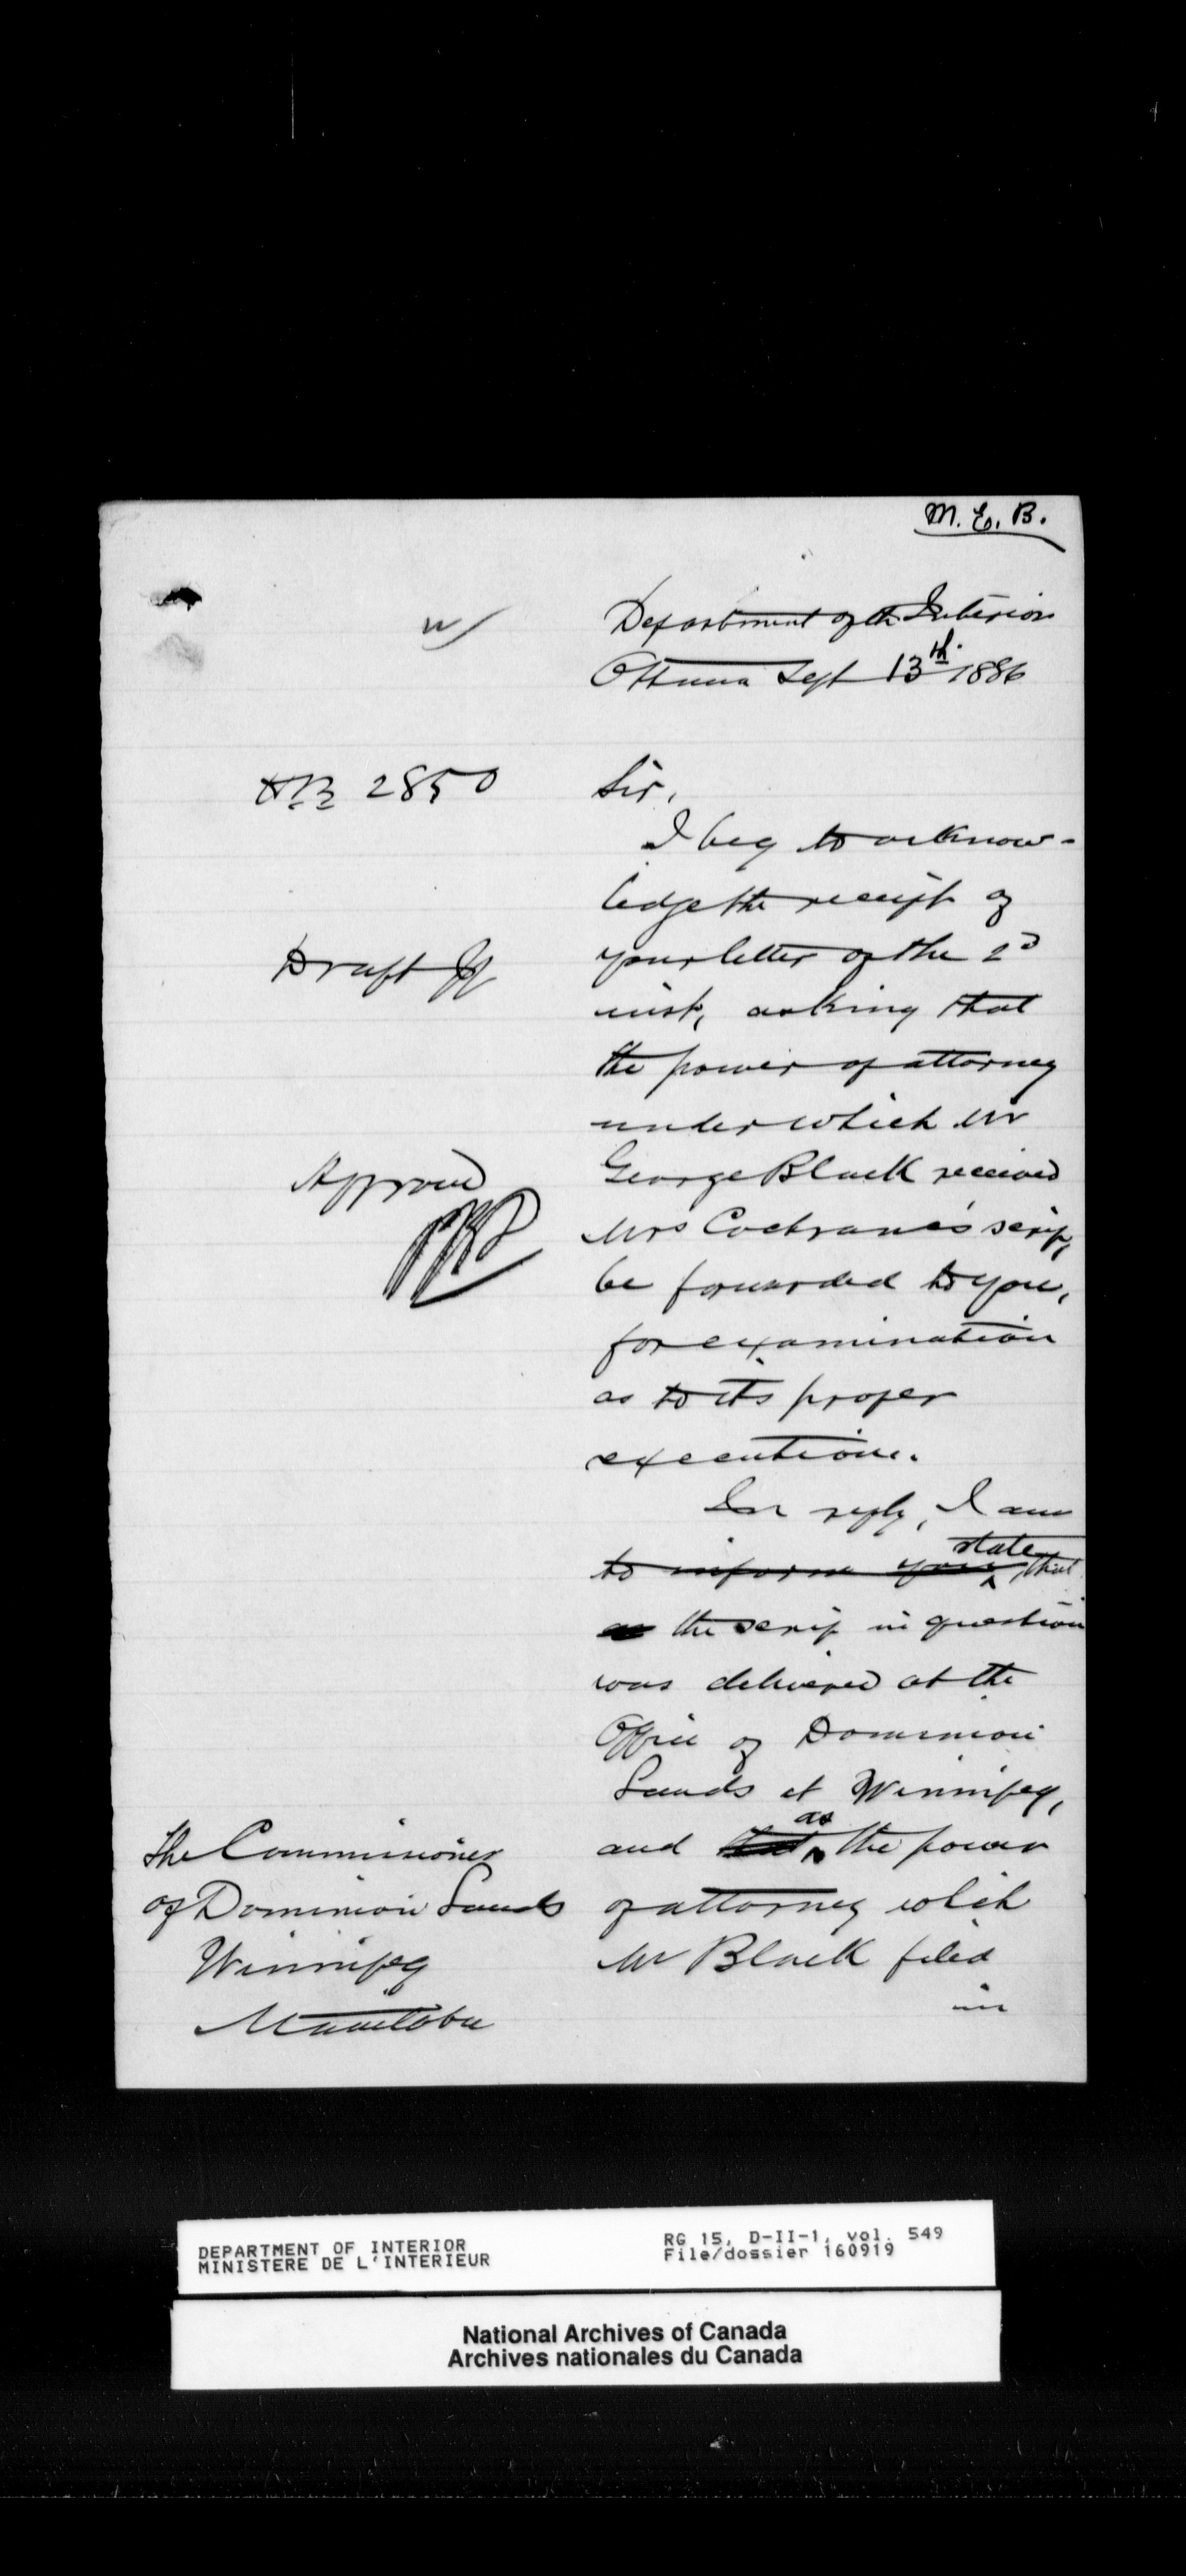 M. E. B.
Department of the Interior
Ottawa Sept 13th. 1886
HB 2850
Sir,
I beg to acknow-
ledge the receipt of
Draft
your letter of the 2d
inst, asking that
the power of attorney
under which Mr
Approved
George Black received
Mrs Cochrane's scrip,
be forwarded to you,
for examination
as to its proper
execution.
In reply, I am
to inform you state that
as the scrip in question
was delivered at the
Office of Dominion
Lands at Winnipeg,
and that as the power
of attorney which
Mr Black filed
in
The Commissioner
of Dominion Lands
Winnipeg
Manitoba
DEPARTMENT OF INTERIOR
MINISTERE DE L'INTERIEUR
RG 15, D-II-1, vol. 549
File/dossier 160919
National Archives of Canada
Archives nationales du Canada